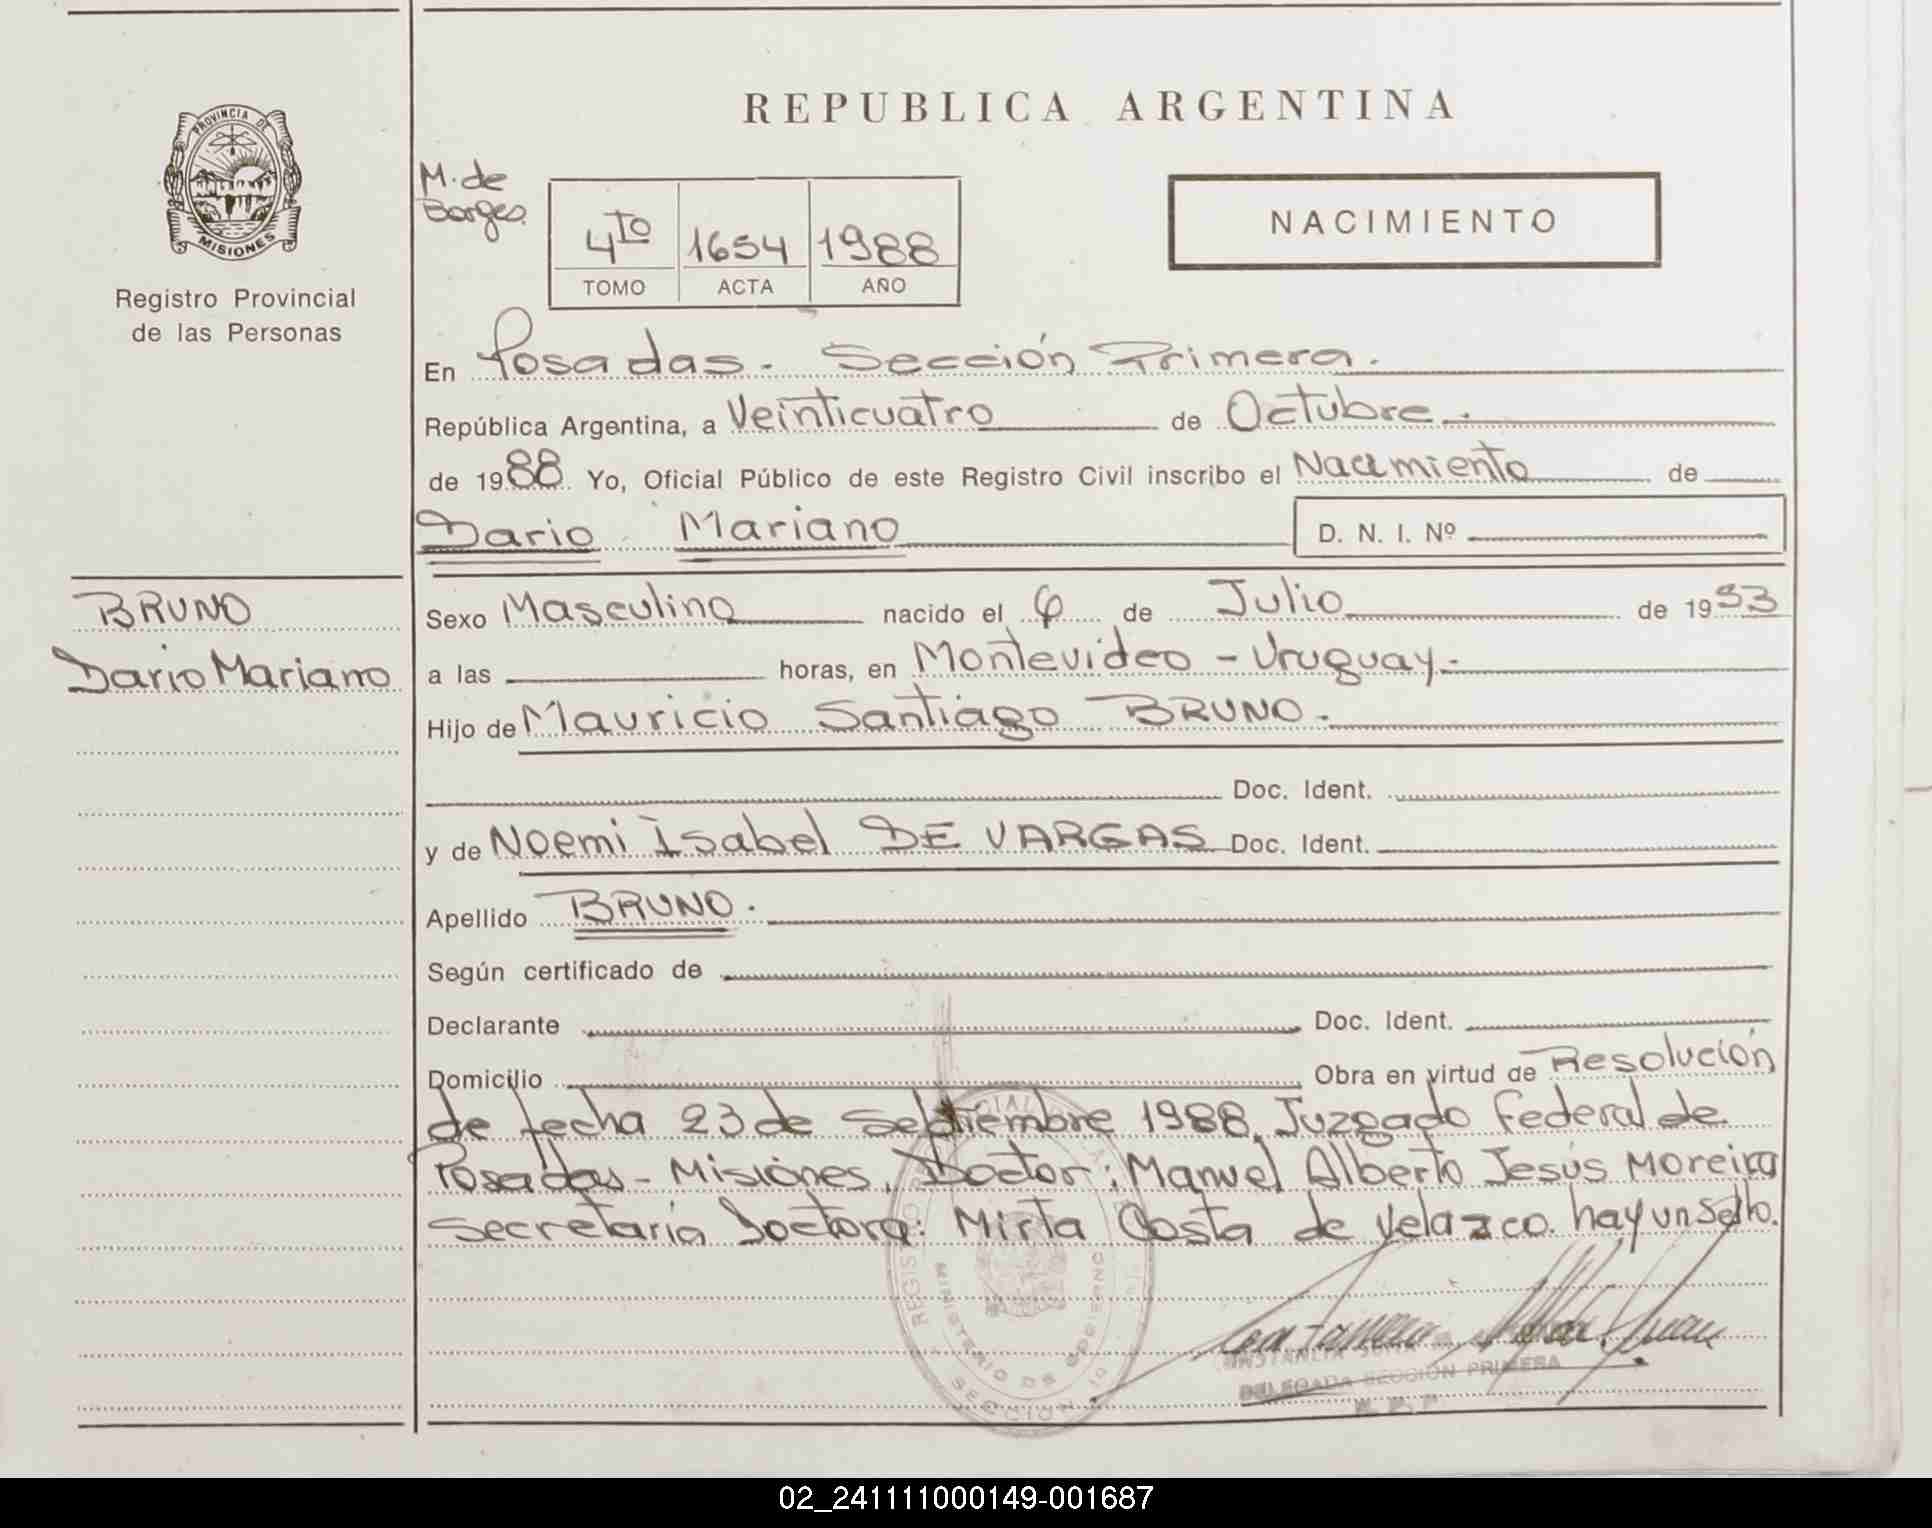 REPUBLICA ARGENTINA
PROVINCIA DE
MISIONES
Registro Provincial
de las Personas
M. de
Borges
4TO 1654 1988
TOMO ACTA AÑO
NACIMIENTO
En Posadas. Sección Primera.
República Argentina, a Veinticuatro de Octubre.
de 1988 Yo, Oficial Público de este Registro Civil inscribo el Nacimiento de
Dario Mariano D. N. I. Nº
BRUNO
Dario Mariano
Sexo Masculino nacido el 6 de Julio de 19
a las horas, en Montevideo - Uruguay.-
Hijo de Mauricio Santiago BRUNO.
Doc. Ident.
y de Noemi Isabel DE VARGAS Doc. Ident.
Apellido BRUNO.
Según certificado de
Declarante Doc. Ident.
Domicilio Obra en virtud de Resolución
de fecha 23 de Septiembre 1988. Juzgado Federal de
Posadas - Misiones. Doctor: Manuel Alberto Jesús Moreira
Secretaria Doctora: Mirta Costa de Velazco. hay un Sello.
REGISTRO
MINISTERIO DE GOBIERNO
SECCION 1a
DELEGADA SECCION PRIMERA
02_241111000149-001687